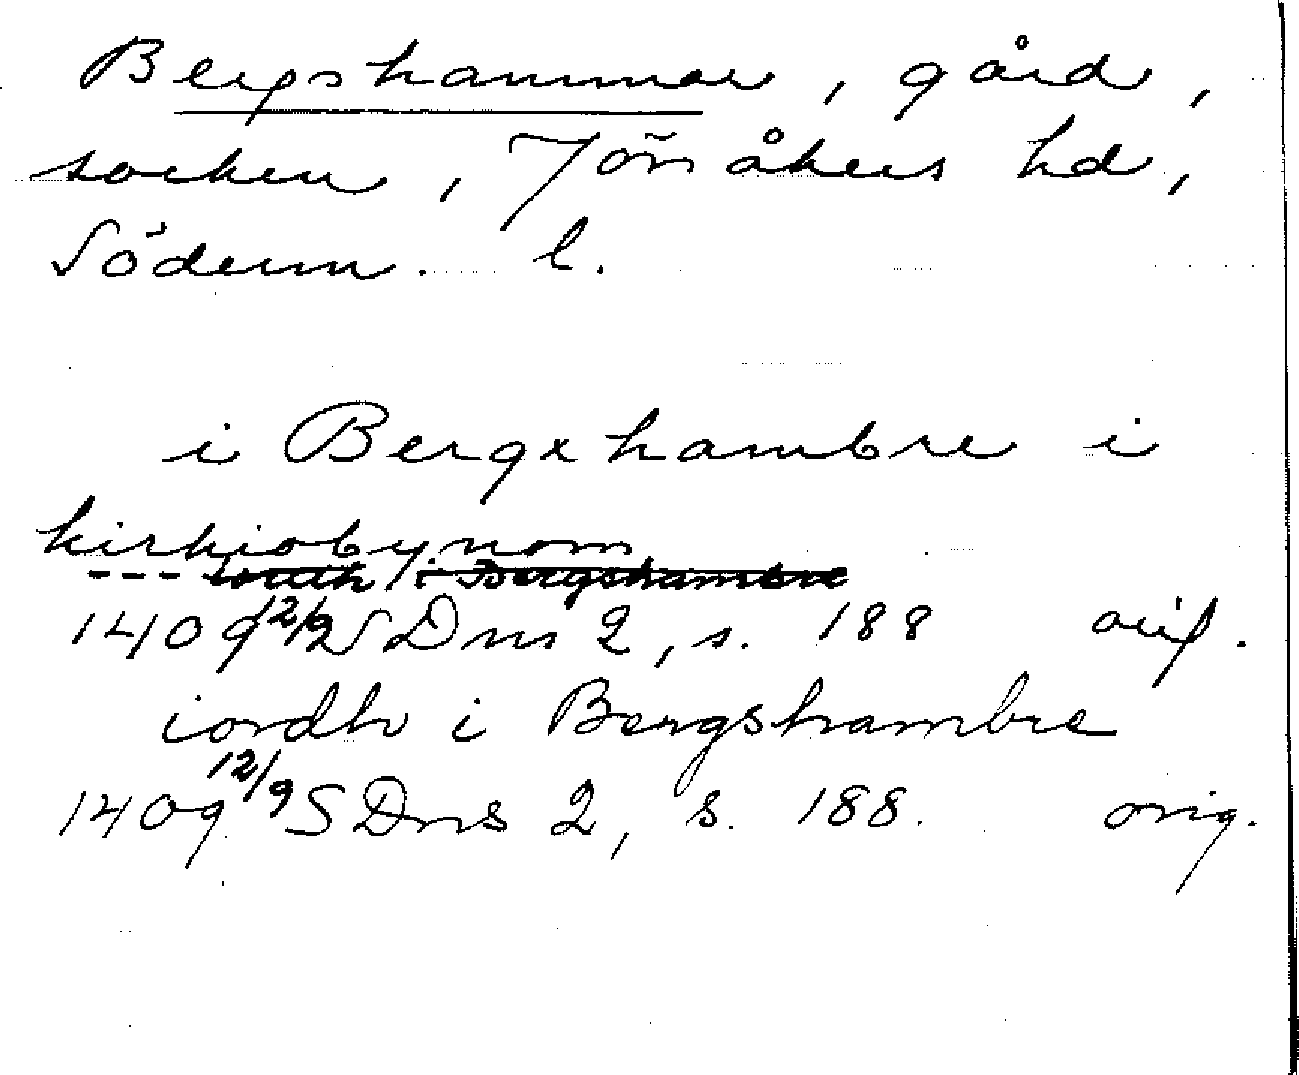 Bergshammar, gård,
socken, Jönåkers hd,
Söderm. l.
i Bergxhambre i
kirkiobynom
--- iordh i Bergshambre
1409 12/9 SDns 2, s. 188 orig.
iordh i Bergshambre
1409 12/9 SDns 2, s. 188. orig.